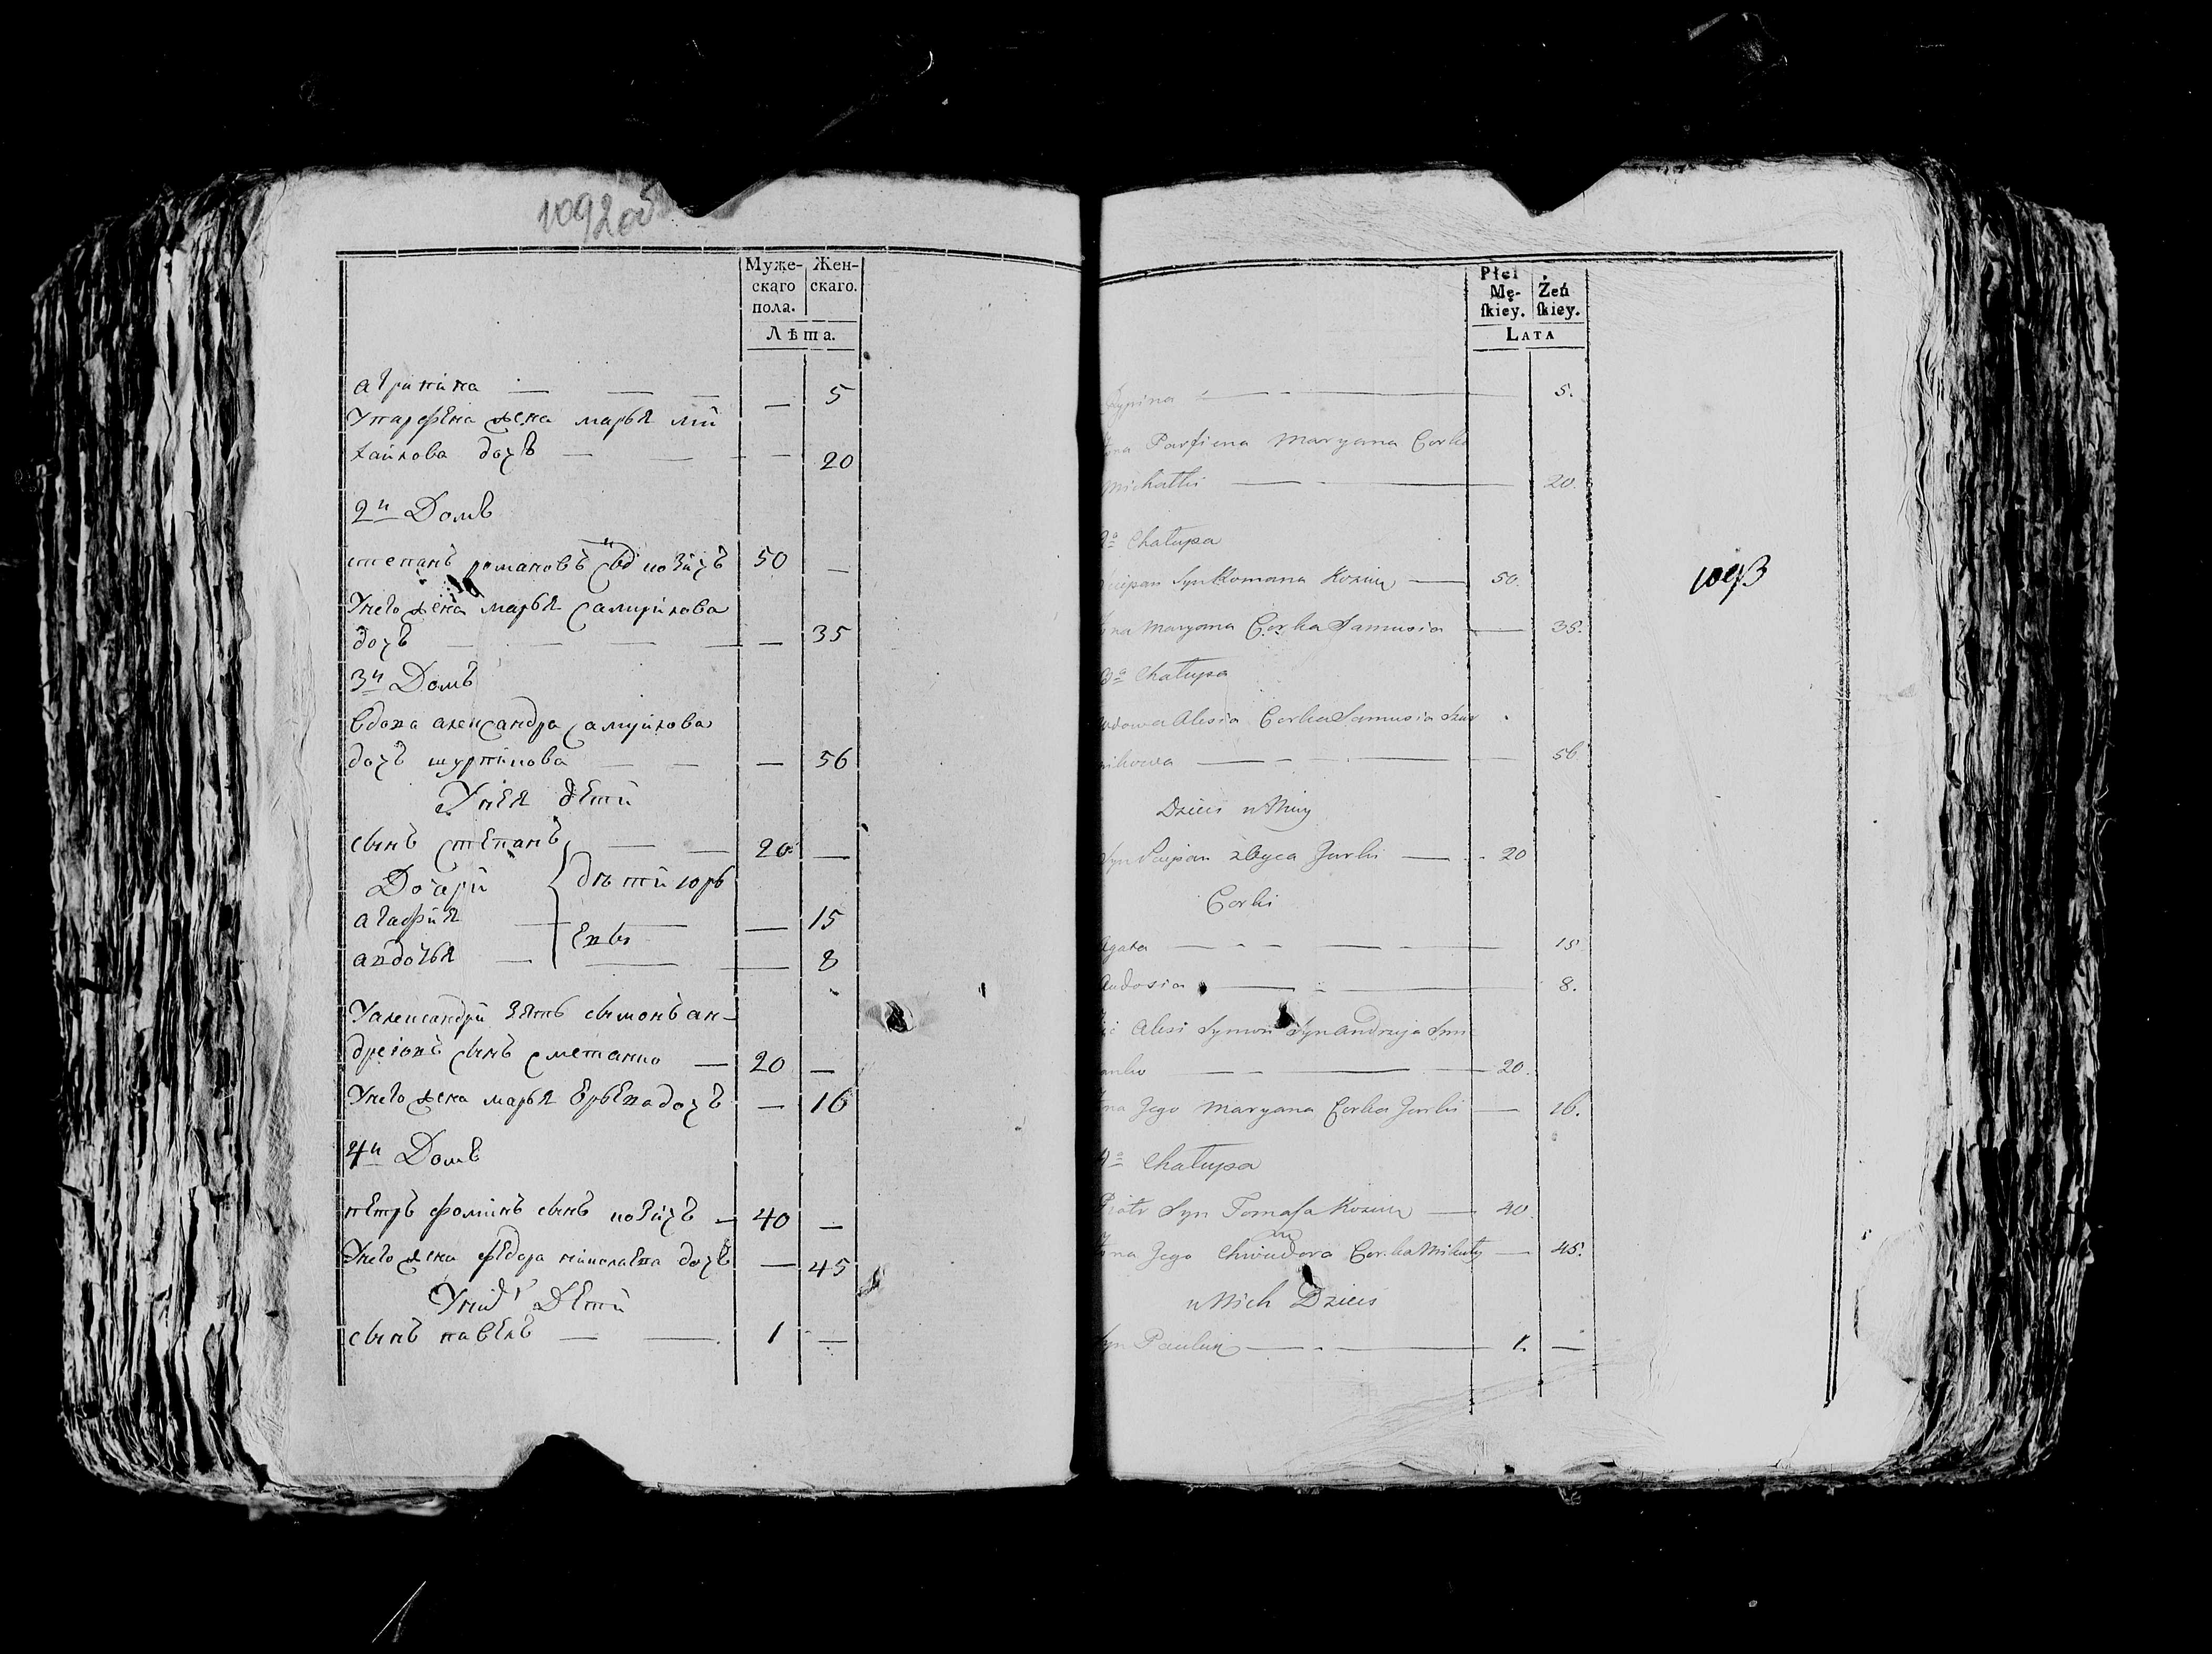 1092об
Муже-
скаго
пола.
Жен-
скаго.
Лѣта.
агрипина — — — — 5
Упарфена жена марья ми
хайлова дочъ — — — — 20
2й Домъ
степанъ романовъ сынъ козичъ 50 —
Унего жена марья самуйлова
дочъ — — — — 35
3й Домъ
вдова александра самуйлова
дочъ шурпикова — — — 56
Унея дети
сынъ степанъ — — 20 —
Дочери
дети юрь
агафия — — 15
евы
авдочья — — — 8
Уалександри зять сымонъ ан-
дреiовъ сынъ сметанко — 20 —
Унего жена марья юрьева дочъ — 16
4й Домъ
петръ фоминъ сынъ козичъ — 40 —
Унего жена федора миколаева дочъ — 45
Унихъ Дети
сынъ павелъ — — 1 —
Płci
Mę-
ſkiey.
Żeń
ſkiey.
LATA
5.
Parfiena Maryana Corka
Michałki — — — 20.
2a Chałupa
Syn Romana Kozicz — 50.
Maryana Corka Samusia — 35.
3a Chałupa
Wdowa Alesia Corka Samusia
— — — 56
Dzieci u Niey
Syn Sciepan z Oyca Jurki — 20
Corki
Agata — — — 15
Audosia — — 8.
Alesi Symon Syn Andrzeja Sm
anko — — — 20.
Jego Maryana Corka Jurki — 16.
4a Chałupa
Piotr Syn Tomaſa Kozicz — 40.
Jego Chwiedora Corka Mikuły — 45.
u Nich Dzieci
Syn Pauluk — — 1. —
1093